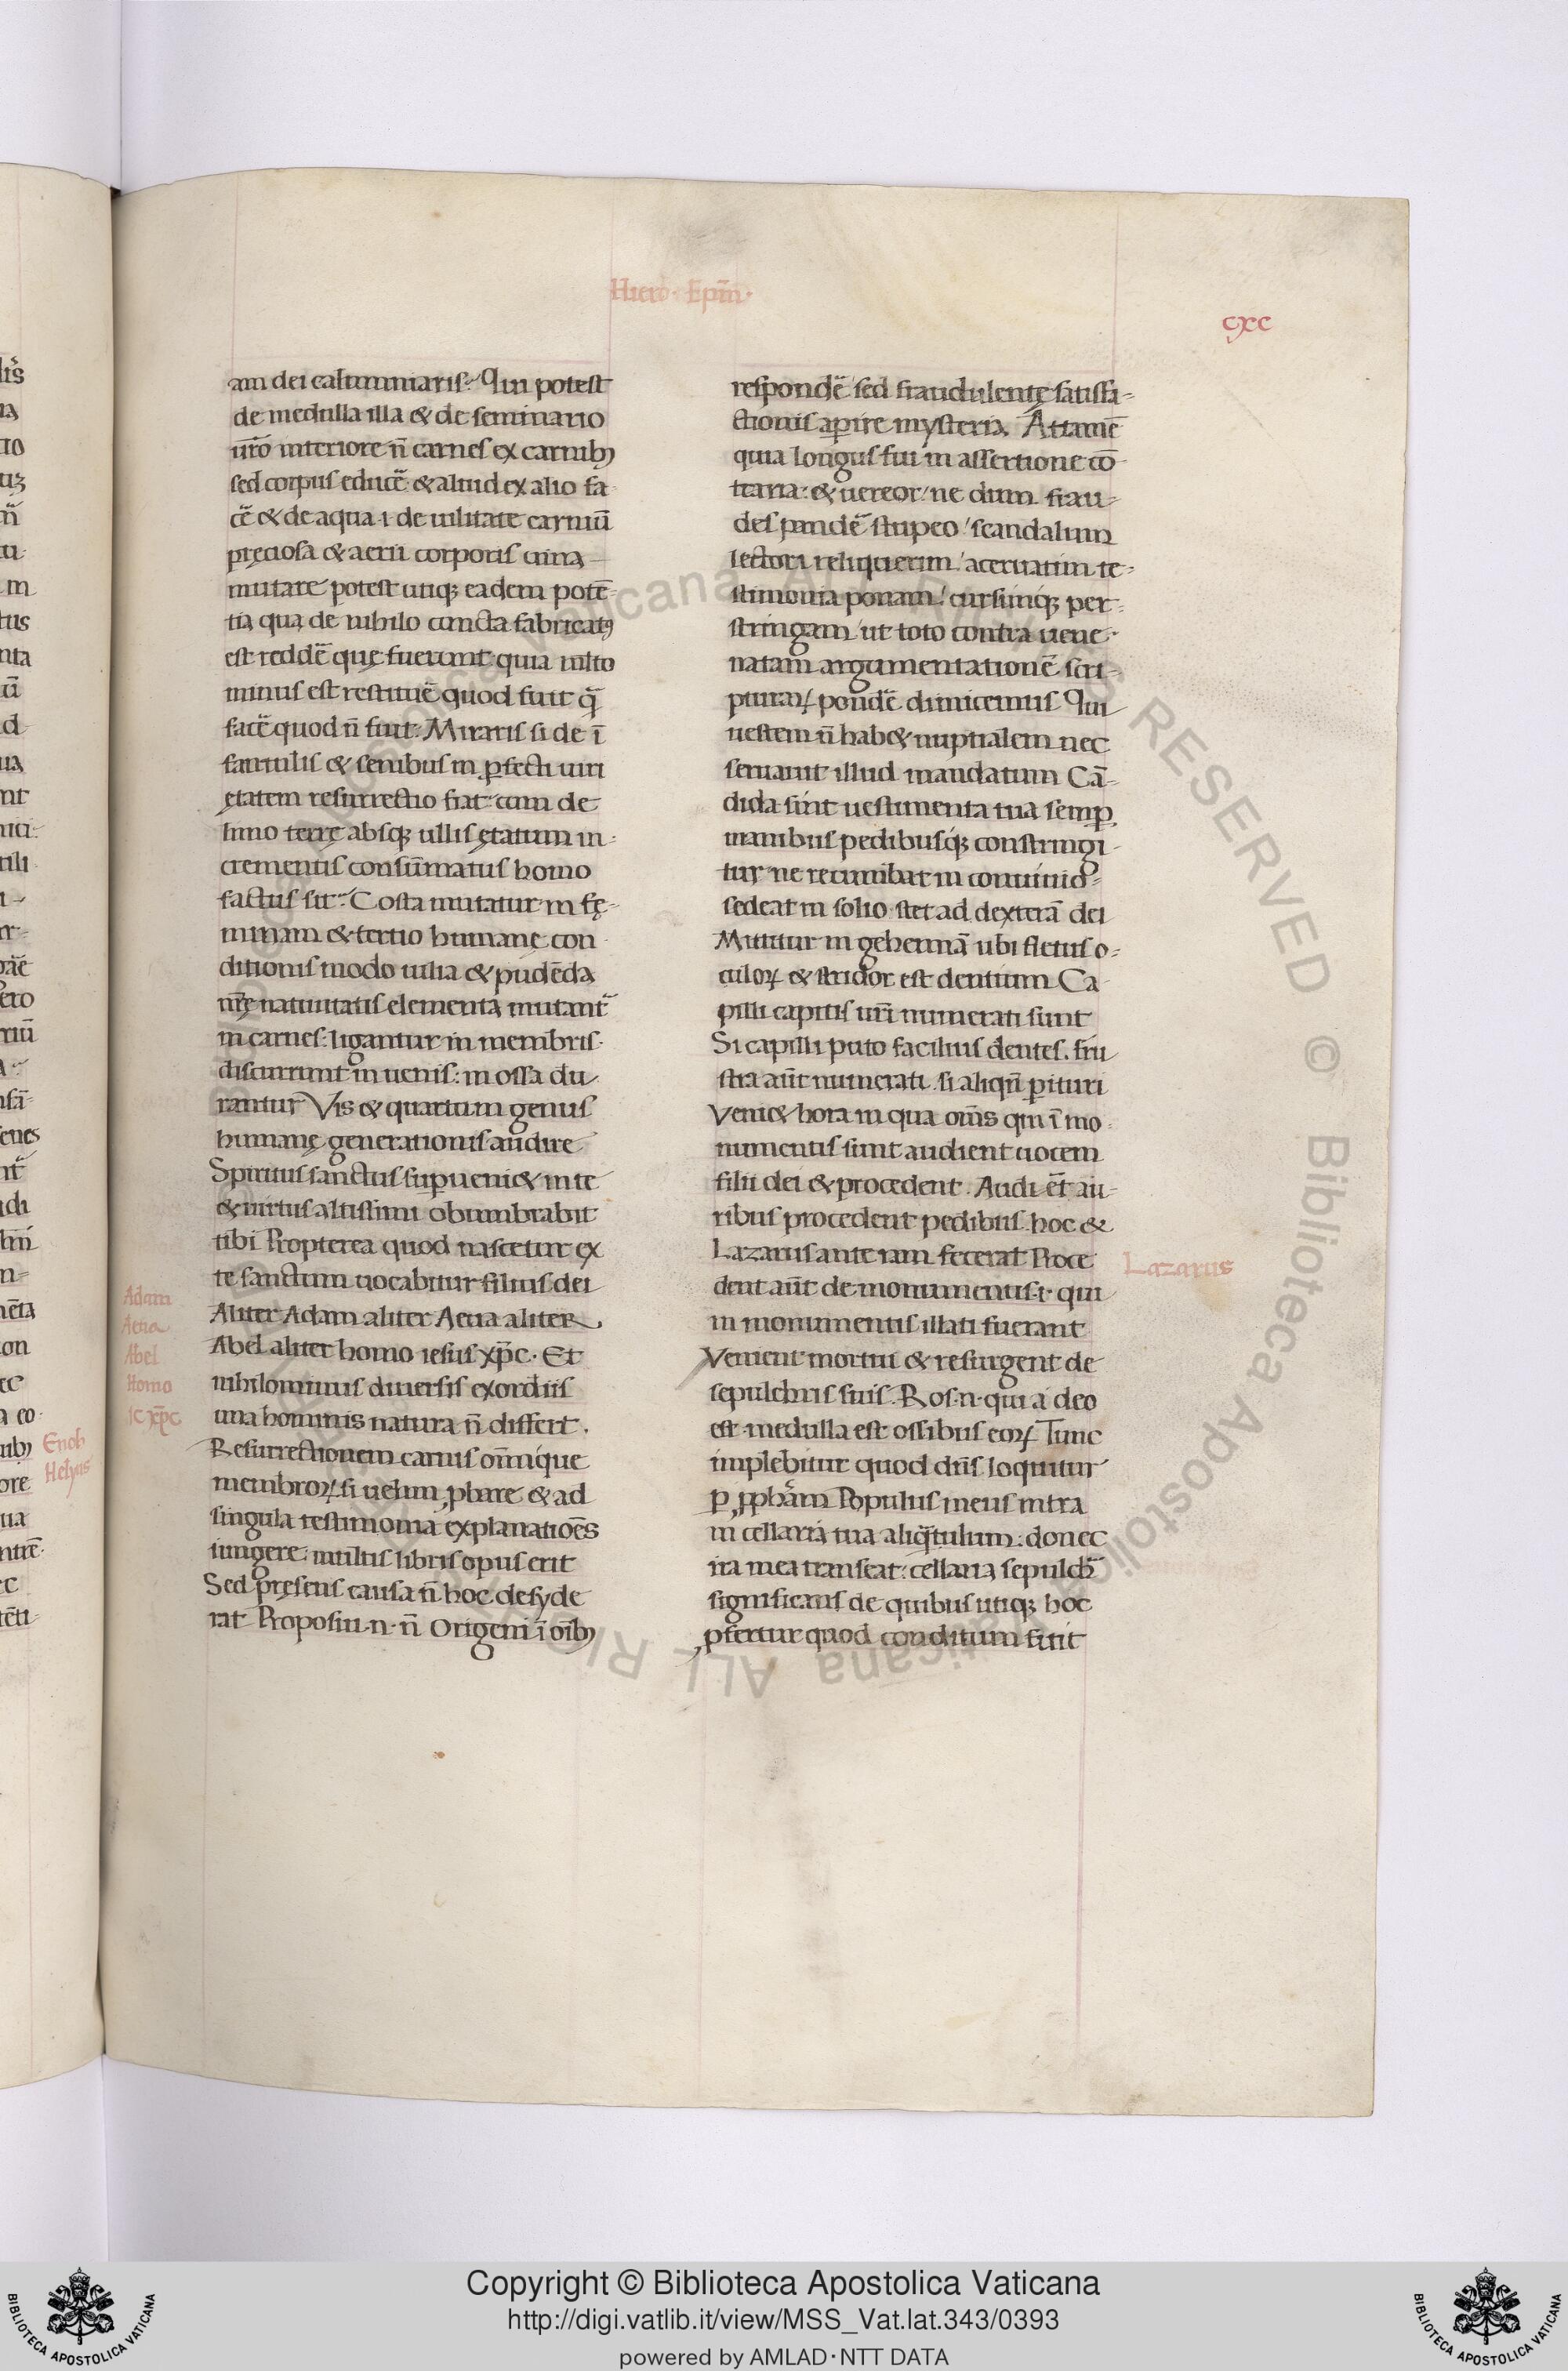 Hiero· Epīn·
cxc
am dei calumniaris? Qui potest
de medulla illa & de seminario
ur̄o interiore n̄ carnes ex carnibꝫ
sed corpus educē. & aliud ex alio fa-
cē & de aqua ·i· de uilitate carniū
pręciosa & aerii corporis uina
mutare potest utiqꝫ eadem potē-
tia qua de nihilo cuncta fabricatꝰ
est reddē quę fuerunt quia mlto
minus est restituē quod fuit qͣ̄
facē quod n̄ fuit. Miraris si de ī
fantulis & senibus in ꝑfecti uiri
ętatem resurrectio fiat cum de
limo terrę absqꝫ ullis ętatum in-
crementis consūmatus homo
factus sit? Costa mutatur in fę-
minam & tertio humanę con
ditionis modo uilia & pudēda
nr̄ę natiuitatis elementa mutant̄
in carnes: ligantur in membris·
discurrunt in uenis: in ossa du-
rantur Vis & quartum genus
humanę generationis audire
Spiritus sanctus suꝑueni& in te
& uirtus altissimi obumbrabit
tibi Propterea quod nascetur ex
te sanctum uocabitur filius dei
Aliter Adam aliter Aeua aliter
Abel aliter homo iesus xp̄c· Et
nihilominus diuersis exordiis
una hominis natura n̄ differt.
Resurrectionem carnis om̄ique
membroꝝ si uelim ꝓbare & ad
singula testimonia explanatiōēs
iungere: multis libris opus erit
Sed pręsens causa n̄ hoc desyde
rat Proposui·n· n̄ Origeni ī oīb⁹
Adam
Aeua
Abel
Homo
ic xp̄c
Enoh
Helyas
respondē sed fraudulentę satisfa-
ctionis aperire mysteria. Attamē
quia longus fui in assertione cō-
traria: & uereor ne dum frau-
des pandē stupeo scandalum
lectori reliquerim aceruatim te-
stimonia ponam cursimqꝫ per-
stringam ut toto contra uene-
natam argumentationē scri-
pturaꝝ pondē dimicemus Qui
uestem n̄ hab& nuptialem nec
seruauit illud mandatum Cā-
dida sint uestimenta tua semꝑ
manibus pedibusqꝫ constringi-
tur ne recumbat in conuiuio
sedeat in solio stet ad dexterā dei
Mittitur in gehennā ubi fletus o-
culoꝝ & stridor est dentium Ca-
pilli capitis ur̄i numerati sunt
Si capilli puto facilius dentes. fru
stra aūt numerati si aliqn̄ ꝑituri
Veni& hora in qua om̄s qui ī mo-
numentis sunt audient uocem
filii dei & procedent. Audi ēt au-
ribus procedent pedibus hoc &
Lazarus ante iam fecerat Proce
dent aūt de monumentis ·i· qui
in monumentis illati fuerant
Venient mortui & resurgent de
sepulchris suis. Ros·n· qui a deo
est medulla est ossibus eoꝝ Tunc
implebitur quod dn̄s loquitur
ꝑ ꝓpham Populus meus intra
in cellaria tua aliqͣ̄tulum: donec
ira mea transeat: cellaria sepulch̄
significans de quibus utiqꝫ hoc
ꝓfertur quod conditum fuit
Lazarus
Copyright © Biblioteca Apostolica Vaticana
http://digi.vatlib.it/view/MSS_Vat.lat.343/0393
powered by AMLAD·NTT DATA